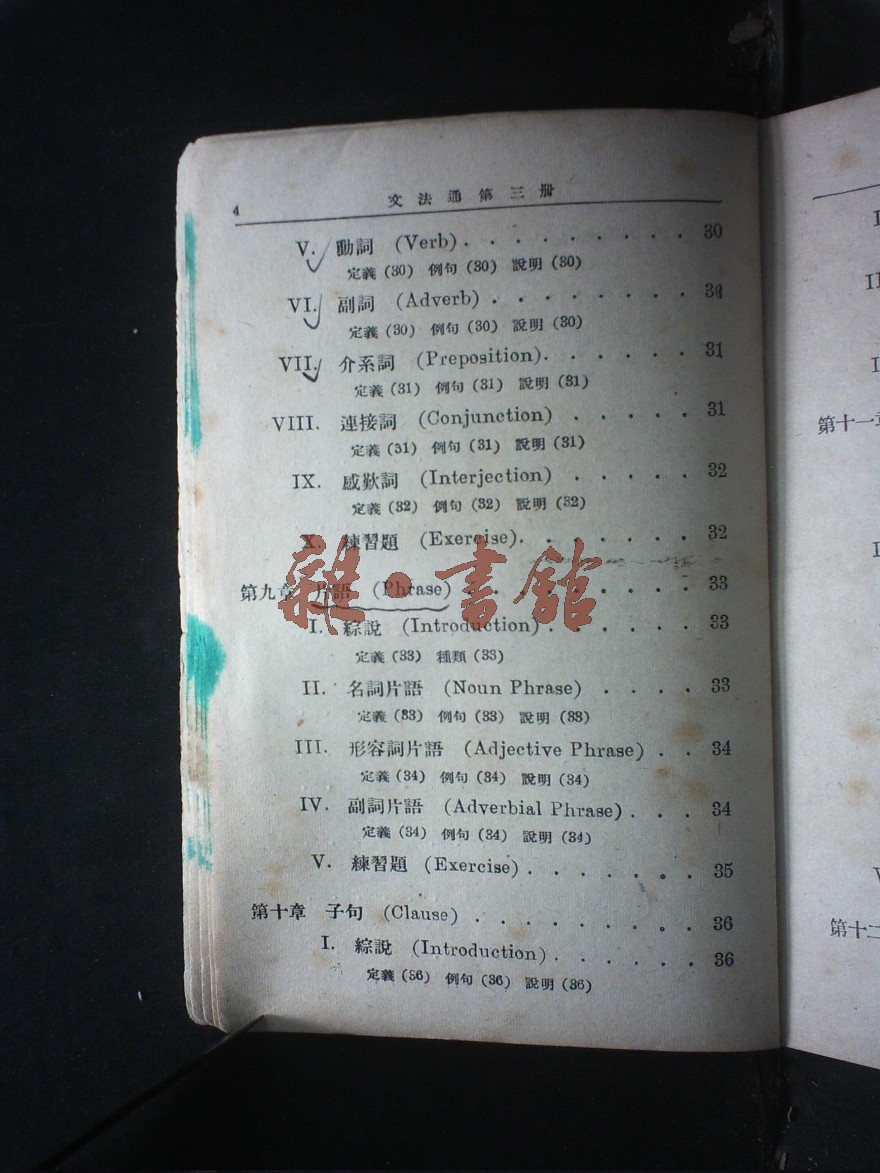 4 文法通第三册
V. 動詞 (Verb) . . . . . . . . . 30
定義 (30) 例句 (30) 說明 (30)
VI. 副詞 (Adverb) . . . . . . . . 30
定義 (30) 例句 (30) 說明 (30)
VII. 介系詞 (Preposition) . . . . . . 31
定義 (31) 例句 (31) 說明 (31)
VIII. 連接詞 (Conjunction) . . . . . 31
定義 (31) 例句 (31) 說明 (31)
IX. 感歎詞 (Interjection) . . . . . 32
定義 (32) 例句 (32) 說明 (32)
X. 練習題 (Exercise) . . . . . . . 32
第九章 片語 (Phrase) . . . . . . . . . 33
雜·書館
I. 綜說 (Introduction) . . . . . . 33
定義 (33) 種類 (33)
II. 名詞片語 (Noun Phrase) . . . . 33
定義 (33) 例句 (33) 說明 (33)
III. 形容詞片語 (Adjective Phrase) . . 34
定義 (34) 例句 (34) 說明 (34)
IV. 副詞片語 (Adverbial Phrase) . . . 34
定義 (34) 例句 (34) 說明 (34)
V. 練習題 (Exercise) . . . . . . . 35
第十章 子句 (Clause) . . . . . . . . . 36
I. 綜說 (Introduction) . . . . . . 36
定義 (36) 例句 (36) 說明 (36)
第十一章
第十二